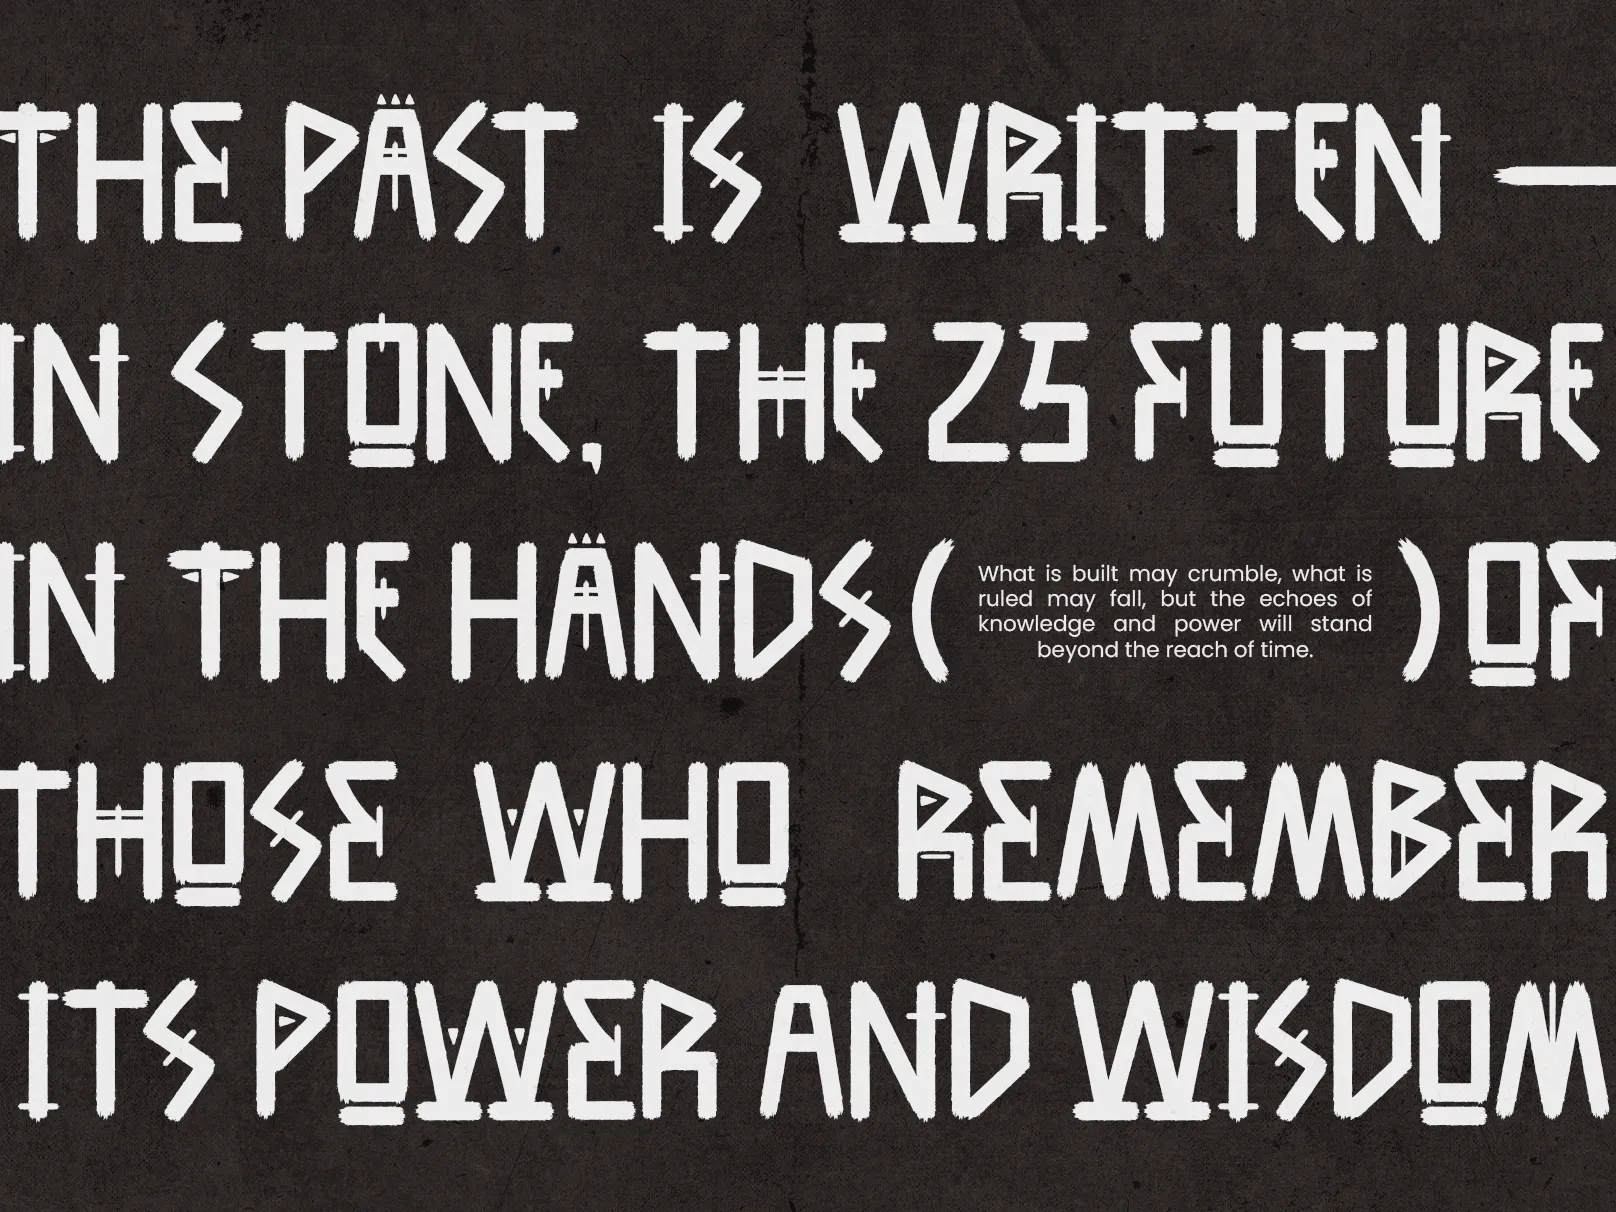 THE PAST IS WRITTEN —
IN STONE, THE 25 FUTURE
IN THE HANDS ( What is built may crumble, what is
ruled may fall, but the echoes of
knowledge and power will stand
beyond the reach of time. ) OF
THOSE WHO REMEMBER
ITS POWER AND WISDOM